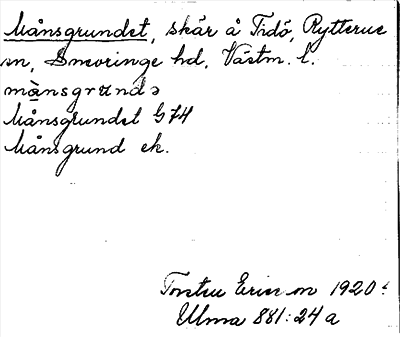 Månsgrundet, skär å Tidö, Rytterne
sn, Snevringe hd, Västm. l.
mȧ̀nsgrundə
Månsgrundet G74
Månsgrund ek.
Torsten Ericsson 1920.
Ulma 881:24 a